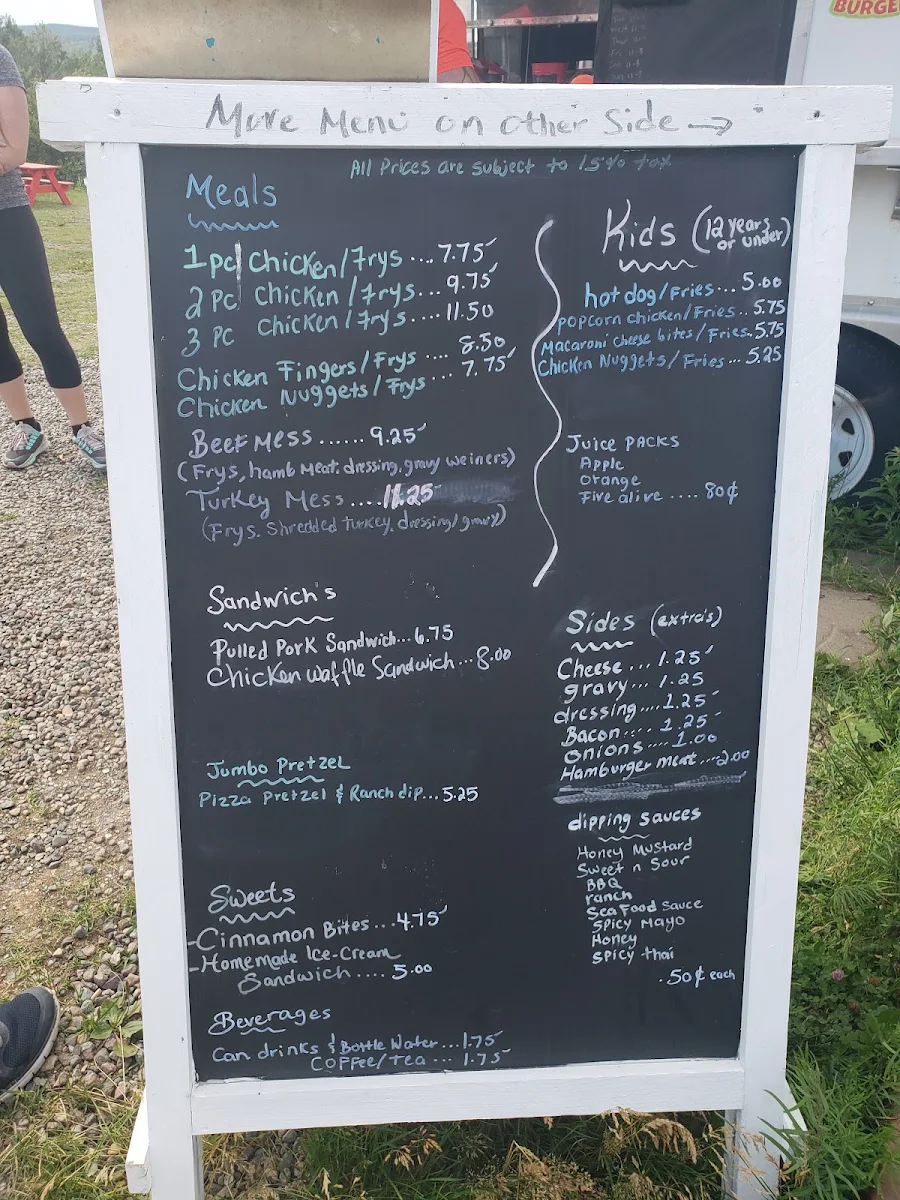 BURGE
More Menu on other Side →
All Prices are subject to 15% tax
Meals
1 pc chicken/Frys .... 7.75
2 Pc chicken /Frys... 9.75
3 PC chicken /Frys.... 11.50
Chicken Fingers/Frys .... 8.50
Chicken Nuggets/Frys ... 7.75
Beef Mess ...... 9.25
(Frys, hamb Meat, dressing, gravy weiners)
Turkey Mess ..... 11.25
(Frys, Shredded turkey, dressing/gravy)
Sandwich's
Pulled Pork Sandwich... 6.75
Chicken waffle Sandwich... 8.00
Jumbo Pretzel
Pizza Pretzel & Ranch dip... 5.25
Sweets
-Cinnamon Bites... 4.75
-Homemade Ice-Cream
Sandwich .... 5.00
Beverages
Can drinks & Bottle Water ...1.75
COFFee/Tea ... 1.75
Kids (12 years
or under)
hot dog/Fries... 5.00
Popcorn Chicken/Fries .. 5.75
Macaroni cheese bites/Fries. 5.75
Chicken Nuggets/Fries... 5.25
Juice PACKS
Apple
Orange
Five alive .... 80¢
Sides (extra's)
Cheese... 1.25
gravy... 1.25
dressing.... 1.25
Bacon.... 1.25
onions .... 1.00
Hamburger meat ... 2.00
dipping sauces
Honey Mustard
Sweet n Sour
BBQ
ranch
SeaFood Sauce
Spicy Mayo
Honey
Spicy thai
.50¢ each